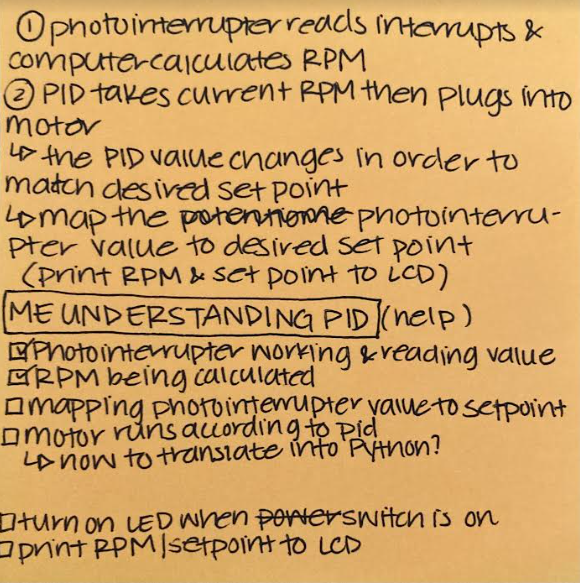 ① photointerrupter reads interrupts &
computer calculates RPM
② PID takes current RPM then plugs into
motor
↳ the PID value changes in order to
match desired set point
↳ map the potentiome photointerru-
pter value to desired set point
(print RPM & set point to LCD)
ME UNDERSTANDING PID (help)
☑ Photointerrupter working & reading value
☑ RPM being calculated
☐ mapping photointerrupter value to setpoint
☐ motor runs according to pid
↳ how to translate into Python?
☐ turn on LED when power switch is on
☐ print RPM/setpoint to LCD